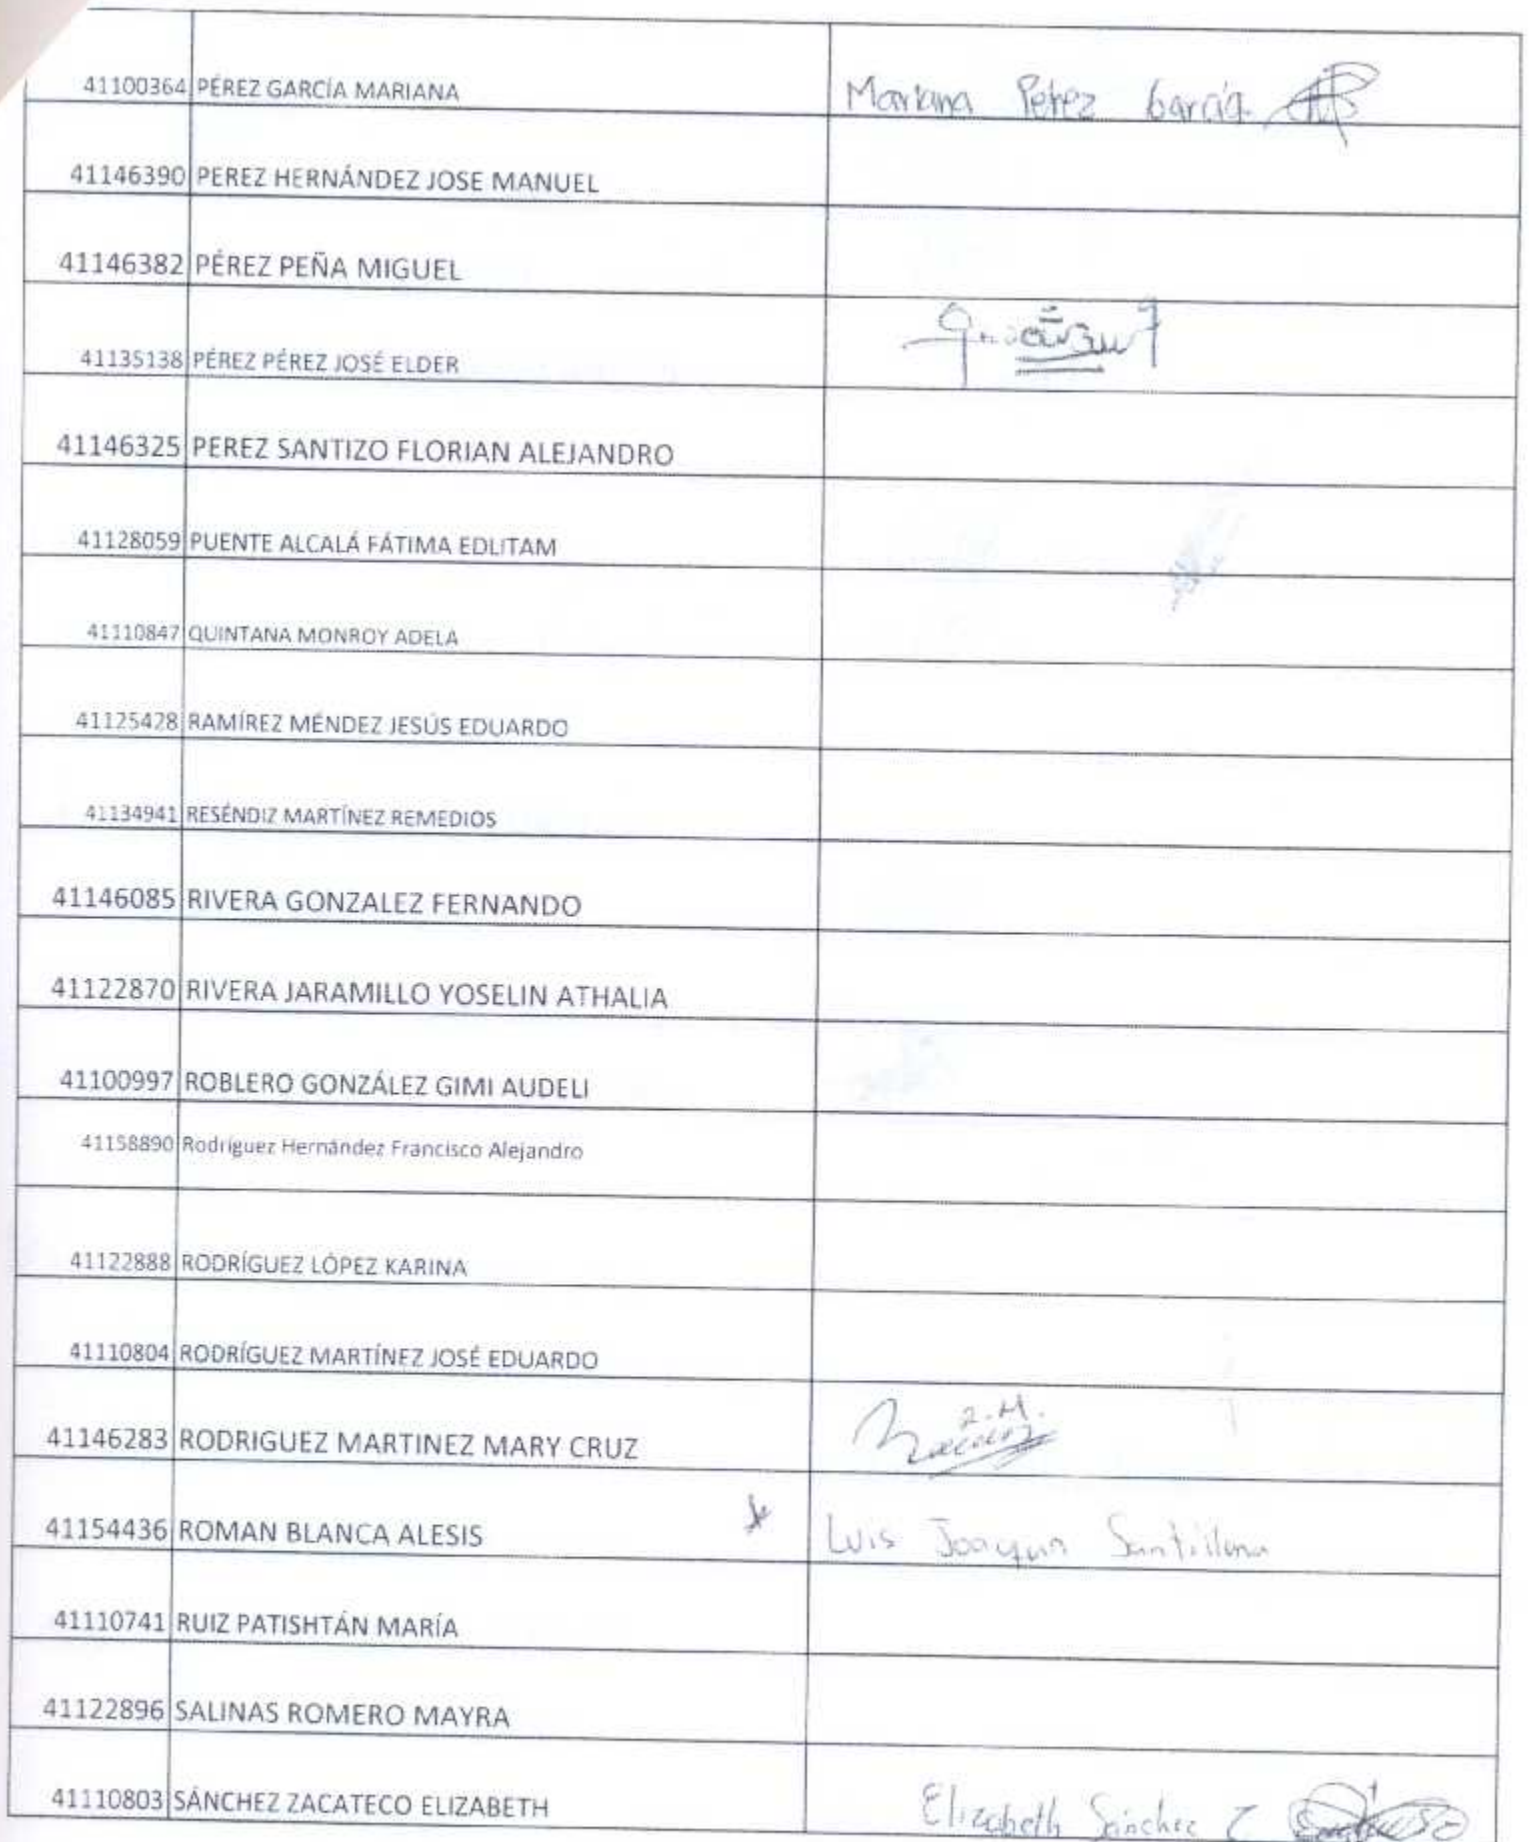 41100364 PÉREZ GARCÍA MARIANA Mariana Pérez García
41146390 PEREZ HERNÁNDEZ JOSE MANUEL
41146382 PÉREZ PEÑA MIGUEL
41135138 PÉREZ PÉREZ JOSÉ ELDER
41146325 PEREZ SANTIZO FLORIAN ALEJANDRO
41128059 PUENTE ALCALÁ FÁTIMA EDLITAM
41110847 QUINTANA MONROY ADELA
41125428 RAMÍREZ MÉNDEZ JESÚS EDUARDO
41134941 RESÉNDIZ MARTÍNEZ REMEDIOS
41146085 RIVERA GONZALEZ FERNANDO
41122870 RIVERA JARAMILLO YOSELIN ATHALIA
41100997 ROBLERO GONZÁLEZ GIMI AUDELI
41158890 Rodríguez Hernández Francisco Alejandro
41122888 RODRÍGUEZ LÓPEZ KARINA
41110804 RODRÍGUEZ MARTÍNEZ JOSÉ EDUARDO
41146283 RODRIGUEZ MARTINEZ MARY CRUZ
41154436 ROMAN BLANCA ALESIS Luis Joaquin Santillana
41110741 RUIZ PATISHTÁN MARÍA
41122896 SALINAS ROMERO MAYRA
41110803 SÁNCHEZ ZACATECO ELIZABETH Elizabeth Sánchez Z